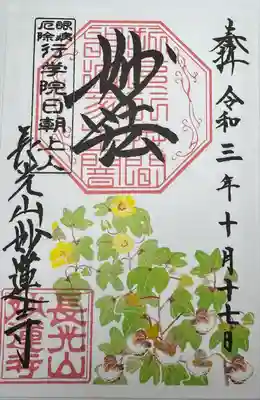 奉拝 令和三年十月十七日
妙法
眼病
厄除
行学院日朝上人
長光山妙蓮寺
長光山
妙蓮寺